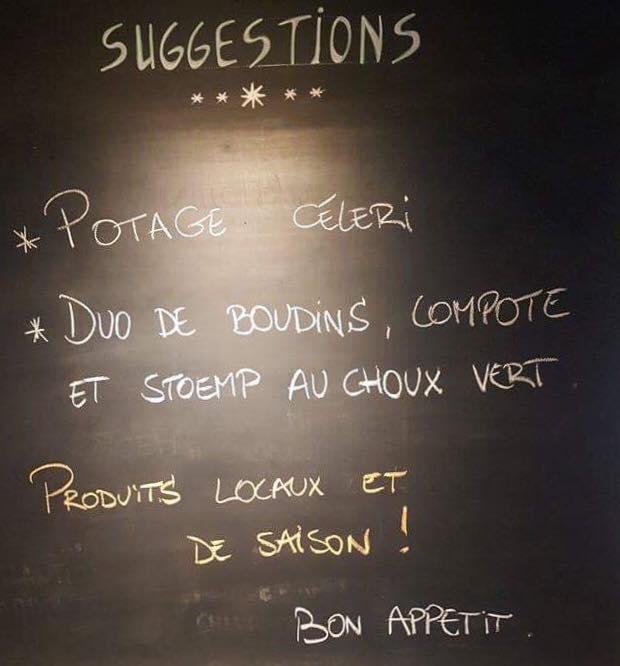 SUGGESTIONS
* * * * *
* POTAGE CÉLERI
* DUO DE BOUDINS, COMPOTE
ET STOEMP AU CHOUX VERT.
PRODUITS LOCAUX ET
DE SAISON !
BON APPETIT.